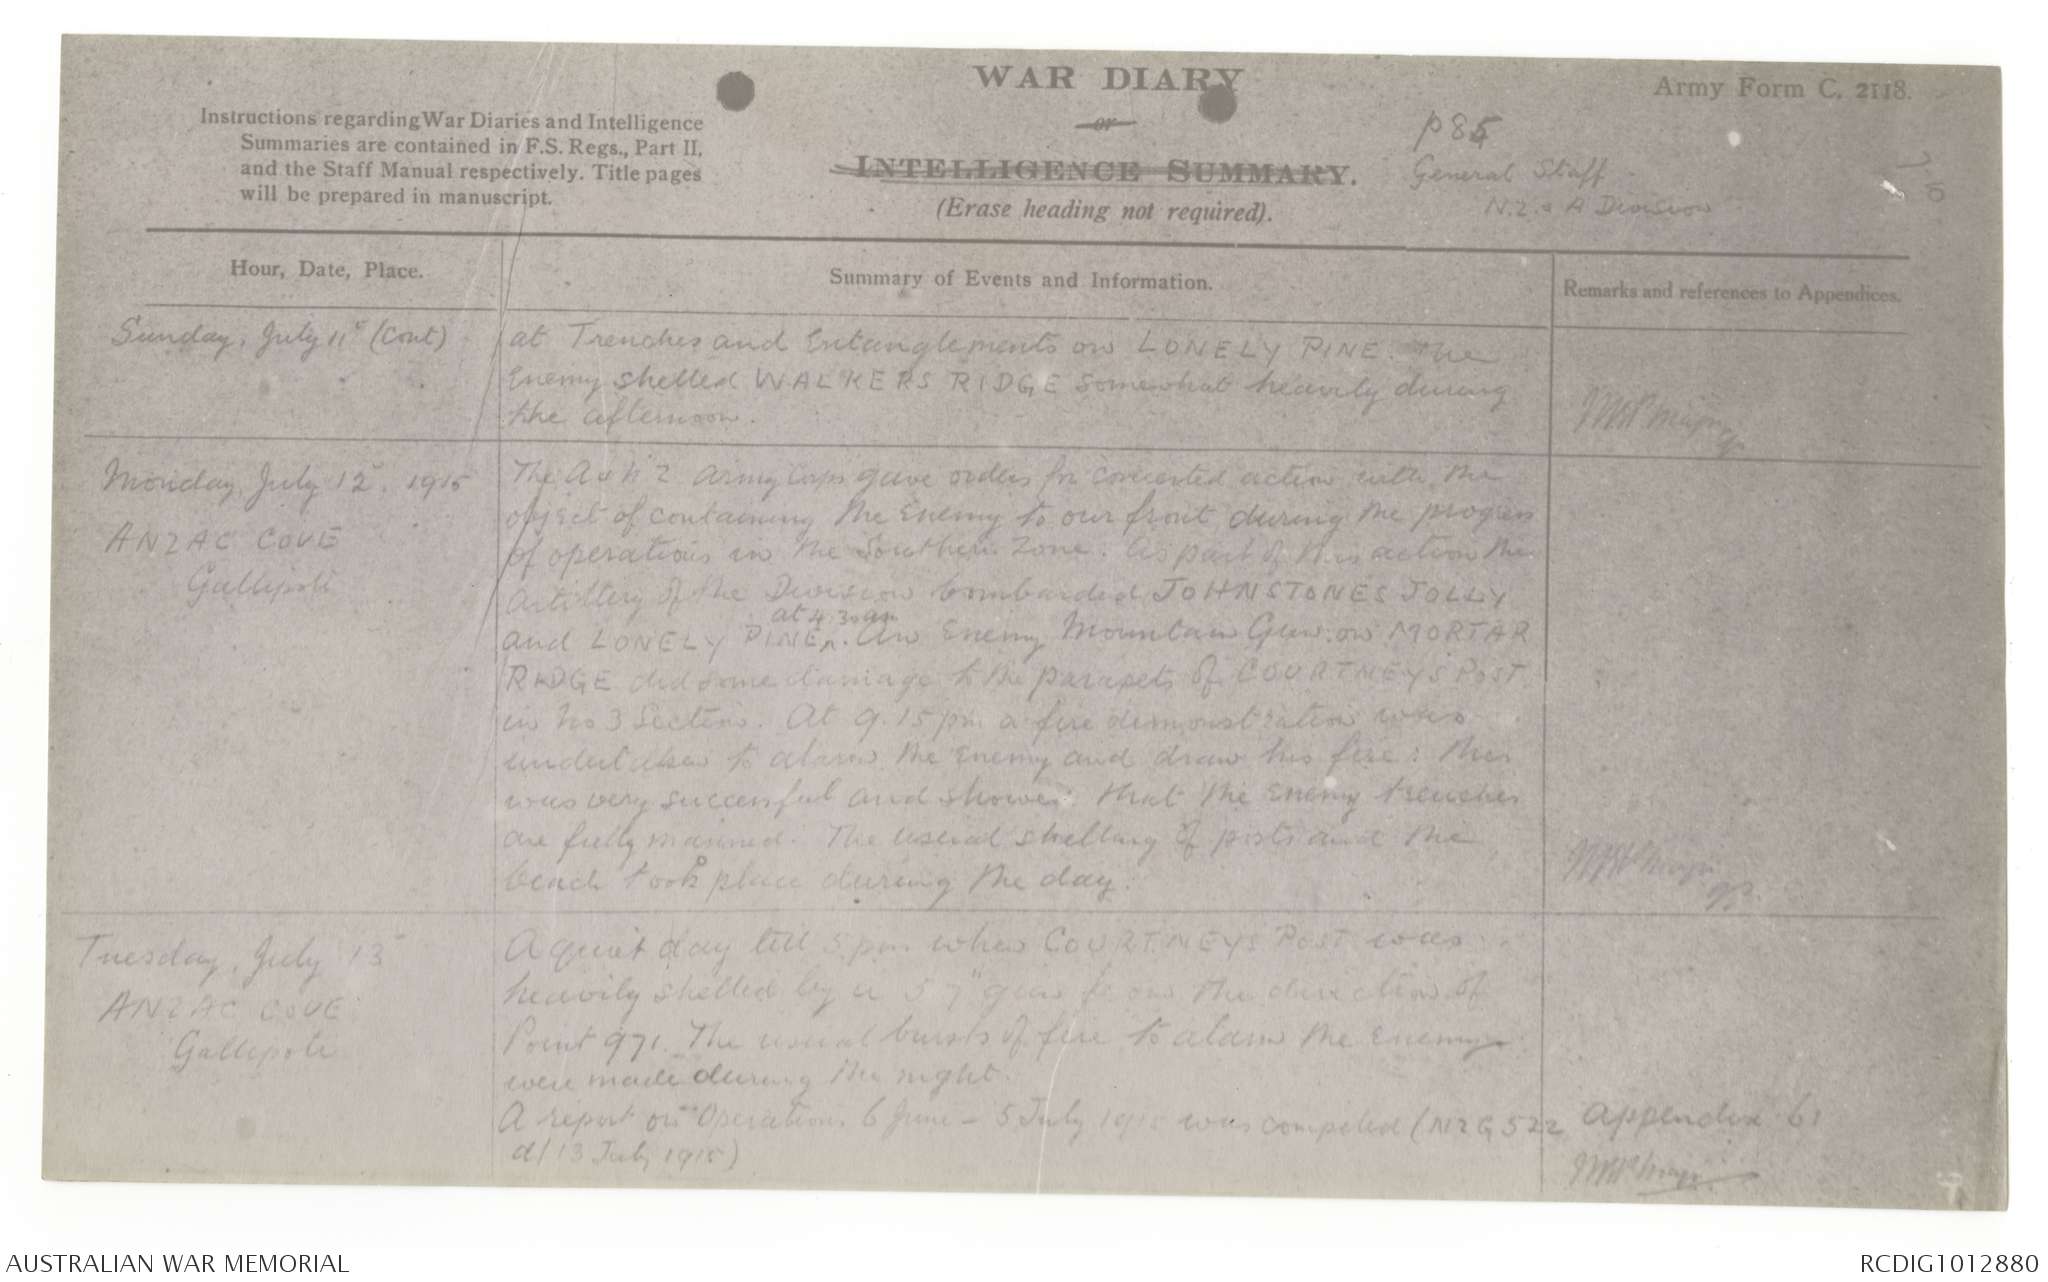 WAR DIARY
or
INTELLIGENCE SUMMARY.
(Erase heading not required).
Army Form C. 2118.
Instructions regarding War Diaries and Intelligence
Summaries are contained in F.S. Regs., Part II.
and the Staff Manual respectively. Title pages
will be prepared in manuscript.
p 85
General Staff
N.Z. & A Division
Hour, Date, Place.
Summary of Events and Information.
Remarks and references to Appendices.
Sunday, July 11 (Cont)
at Trenches and Entanglements on LONELY PINE. The
Enemy shelled WALKERS RIDGE somewhat heavily during
the afternoon.
Monday, July 12. 1915
ANZAC COVE
Gallipoli
The A & NZ Army Corps gave orders for concerted action with the
object of containing the Enemy to our front during the progress
of operations in the Southern Zone. As part of this action the
Artillery of the Division bombarded JOHNSTONES JOLLY
at 4.30 am
and LONELY PINE. An Enemy Mountain Gun on MORTAR
RIDGE did some damage to the parapets of COURTNEYS POST
in No 3 Section. At 9.15 pm a fire demonstration was
undertaken to alarm the Enemy and draw his fire: this
was very successful and shewed that the Enemy trenches
are fully manned. The usual shelling of posts and the
beach took place during the day.
Tuesday, July 13
ANZAC COVE
Gallipoli
A quiet day till 5 pm when COURTNEYS POST was
heavily shelled by a 5 7" gun from the direction of
Point 971. The usual bursts of fire to alarm the Enemy
were made during the night.
A report on Operations 6 June - 5 July 1915 was compiled (NZG 522
d/ 13 July 1915)
Appendix 61
AUSTRALIAN WAR MEMORIAL
RCDIG1012880